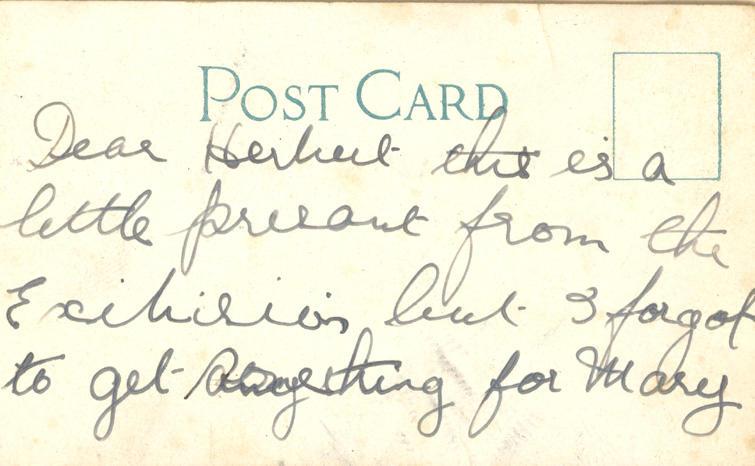 POST CARD
Dear Herbert this is a
little presant from the
Exihision but I forgot
to get anything for Mary